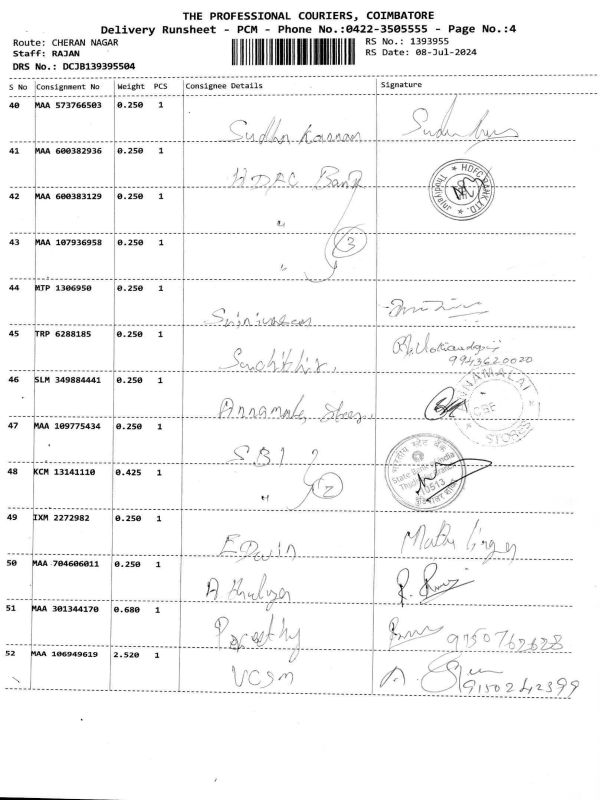 THE PROFESSIONAL COURIERS, COIMBATORE
Delivery Runsheet - PCM - Phone No.:0422-3505555 - Page No.:4
Route: CHERAN NAGAR
RS No.: 1393955
Staff: RAJAN
RS Date: 08-Jul-2024
DRS No.: DCJB139395504
S No Consignment No Weight PCS Consignee Details Signature
40 MAA 573766503 0.250 1
41 MAA 600382936 0.250 1 HDFC Bank
HDFC BANK LTD.
42 MAA 600383129 0.250 1 "
43 MAA 107936958 0.250 1 " 3
44 MTP 1306950 0.250 1
45 TRP 6288185 0.250 1
9943620020
46 SLM 349884441 0.250 1 Annamalai
STORES
47 MAA 109775434 0.250 1 SBI
State Bank of India
48 KCM 13141110 0.425 1 " 2
49 IXM 2272982 0.250 1 Edwin
50 MAA 704606011 0.250 1
51 MAA 301344170 0.680 1
9750762628
52 MAA 106949619 2.520 1 VCSM
9150242399